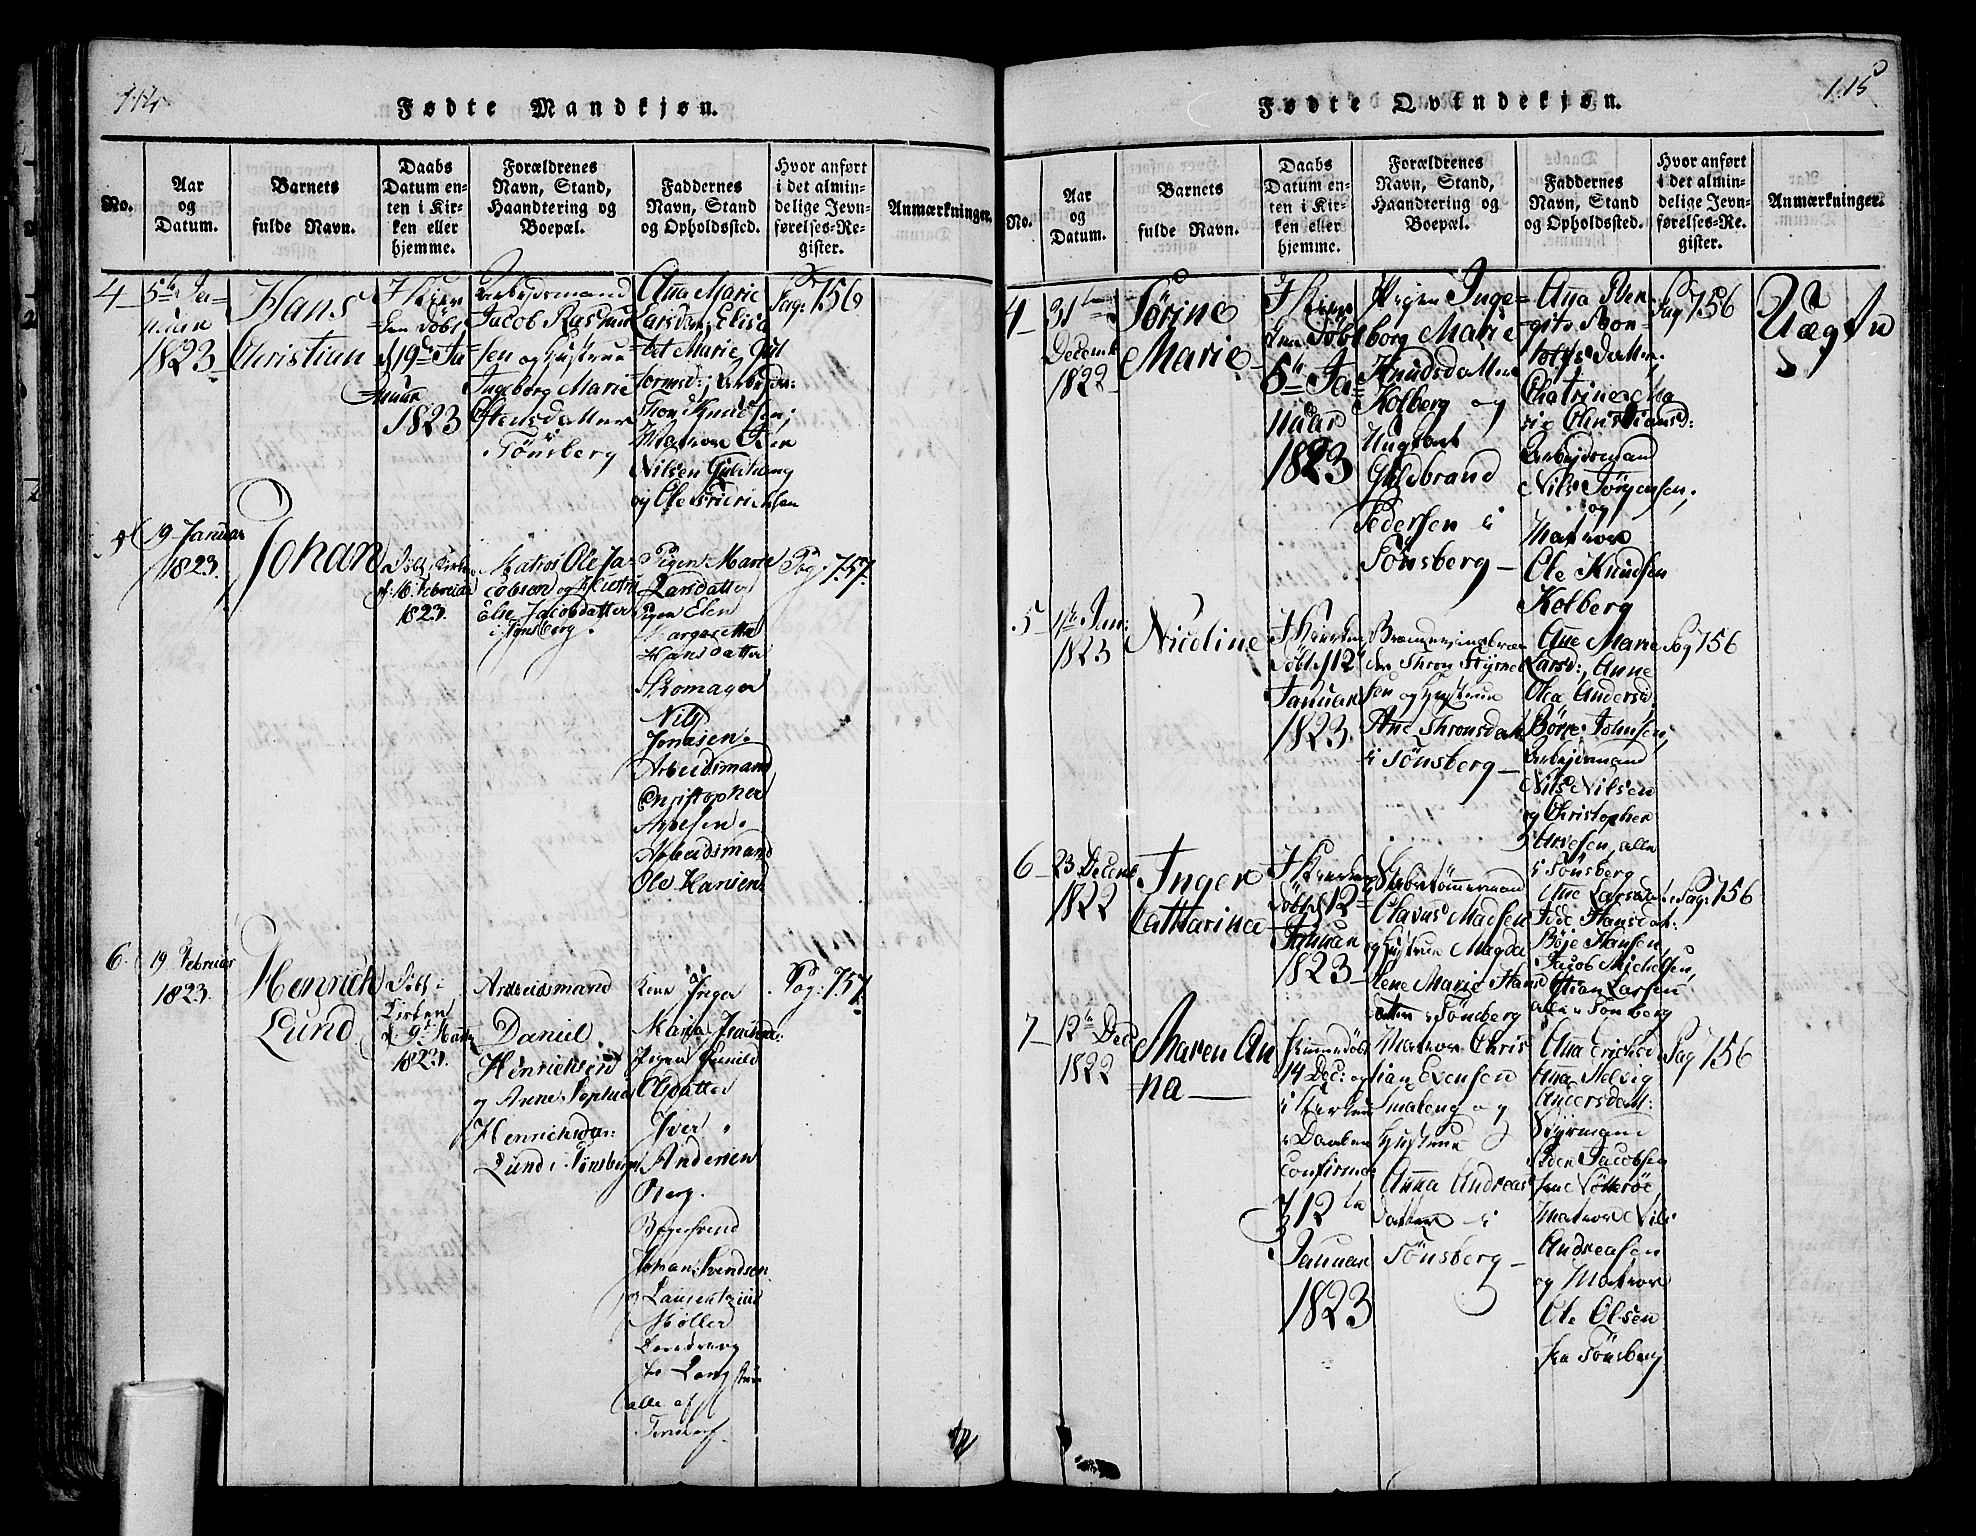 114
Fødte Mandkjøn.
No.
Aar
og
Datum.
Barnets
fulde Navn.
Daabs
Datum en-
ten i Kir-
ken eller
hjemme.
Forældrenes
Navn, Stand,
Haandtering og
Boepæl.
Faddernes
Navn, Stand
og Opholdssted.
Hvor anført
i det almin-
delige Jevn-
førelses-Re-
gister.
Anmærkninger.
4
5te Ja-
nuar
1823
Hans
Christian
I Kir-
ken døbt
d 19de Ja
nuar
1823
Arbejdsmand
Jacob Rasmus
sen og Hustrue
Ingeborg Marie
i
Tönsberg
Anna Marie
Larsdan, Elisa
bet Marie
Thom Knudsen;
Matros
Nilsen
og Ole
Pag: 156
19 Januar
1823.
Johan
Døbt i Kirken
d. 16. Februar
1823.
Matros Ole Ja-
cobsen og Hustru
Else Jacobdatter
i Tønsberg.
Pigen Marie
Larsdatter
Pigen Elen
Margarette
Hansdatter
Skomager
Nils
Jensen.
Arbeidsmand
Christopher
Arbeidsmand
Ole Hansen
Pag. 157.
6.
19 Februar
1823.
Henrich
Lund
Døbt i
Kirken
d. 9de Marts
1823.
Arbeidsmand
Daniel
Henrichsen
og Anne Sophia
Henrichsdat:
Lund i Tønsberg
Maria
Pigen Gunild
Olsdatter
Iver
Andersen
Berg.
Johan Svendsen
og Laurentzius
Møller
alle af
Pag: 157.
115
Fødte Qvindekjøn.
No.
Aar
og
Datum.
Barnets
fulde Navn.
Daabs
Datum en-
ten i Kir-
ken eller
hjemme.
Forældrenes
Navn, Stand,
Haandtering og
Boepæl.
Faddernes
Navn, Stand
og Opholdssted.
Hvor anført
i det almin-
delige Jevn-
førelses-Re-
gister.
Anmærkninger.
4
31te
Decemb
1822
Sörine
Marie
I Kir-
ken døbt
5te Ja-
nuar
1823
Pigen Inge-
borg Marie
Knudsdatter
Kolberg og
Ungkarl
Guldbrand
Pedersen i
Tönsberg
Anna Ben-
Chatrine Ma
rie Christiansd:
Arbejdsmand
Nils Jörgensen;
og
Matros
Ole Knudsen
Kolberg
Pag 156
Uægte
5
Jan:
1823
Nicoline
I Kirken
døbt d 12te
Januar
1823.
sen og Hustrue
Ane Thronsdat
i Tönsberg
Ane Marie
Larsd:, Anne
Olea Andersd
Börre Johnsen,
Arbejdsmand
Nils Nilsen
og Christopher
Arvesen, alle
i Tönsberg
Pag 156
6
23 Decemb
1822
Inger
Catharina
I Kirken
döbt d 12te
Januar
1823
Skibstömmermand
Olavus Madsen
og Hustrue Magda
lene Marie Hans
datter i Tönsberg
Ane Larsdat:
Hansdat:
Böje Hansen
Jacob Michelsen,
Larsen
alle i Tönsberg
Pag: 156
7
12te Dec
1822
Maren An
na
Hiemmedöbt
14 Dec: og
i Kirken
Daaben
Confirme
d 12te
Januar
1823
Matros Chris
tian Evensen
Smaleng og
Hustrue
Anna Andreas
datter i
Tönsberg
Anna Erichsd
Anna Helvig
Andersdatt:
Styrmand
Peder Jacobsen
fra Nötteröe
Matros Nils
Andreasen
og Matros
Ole Olsen
fra Tönsberg
Pag 156